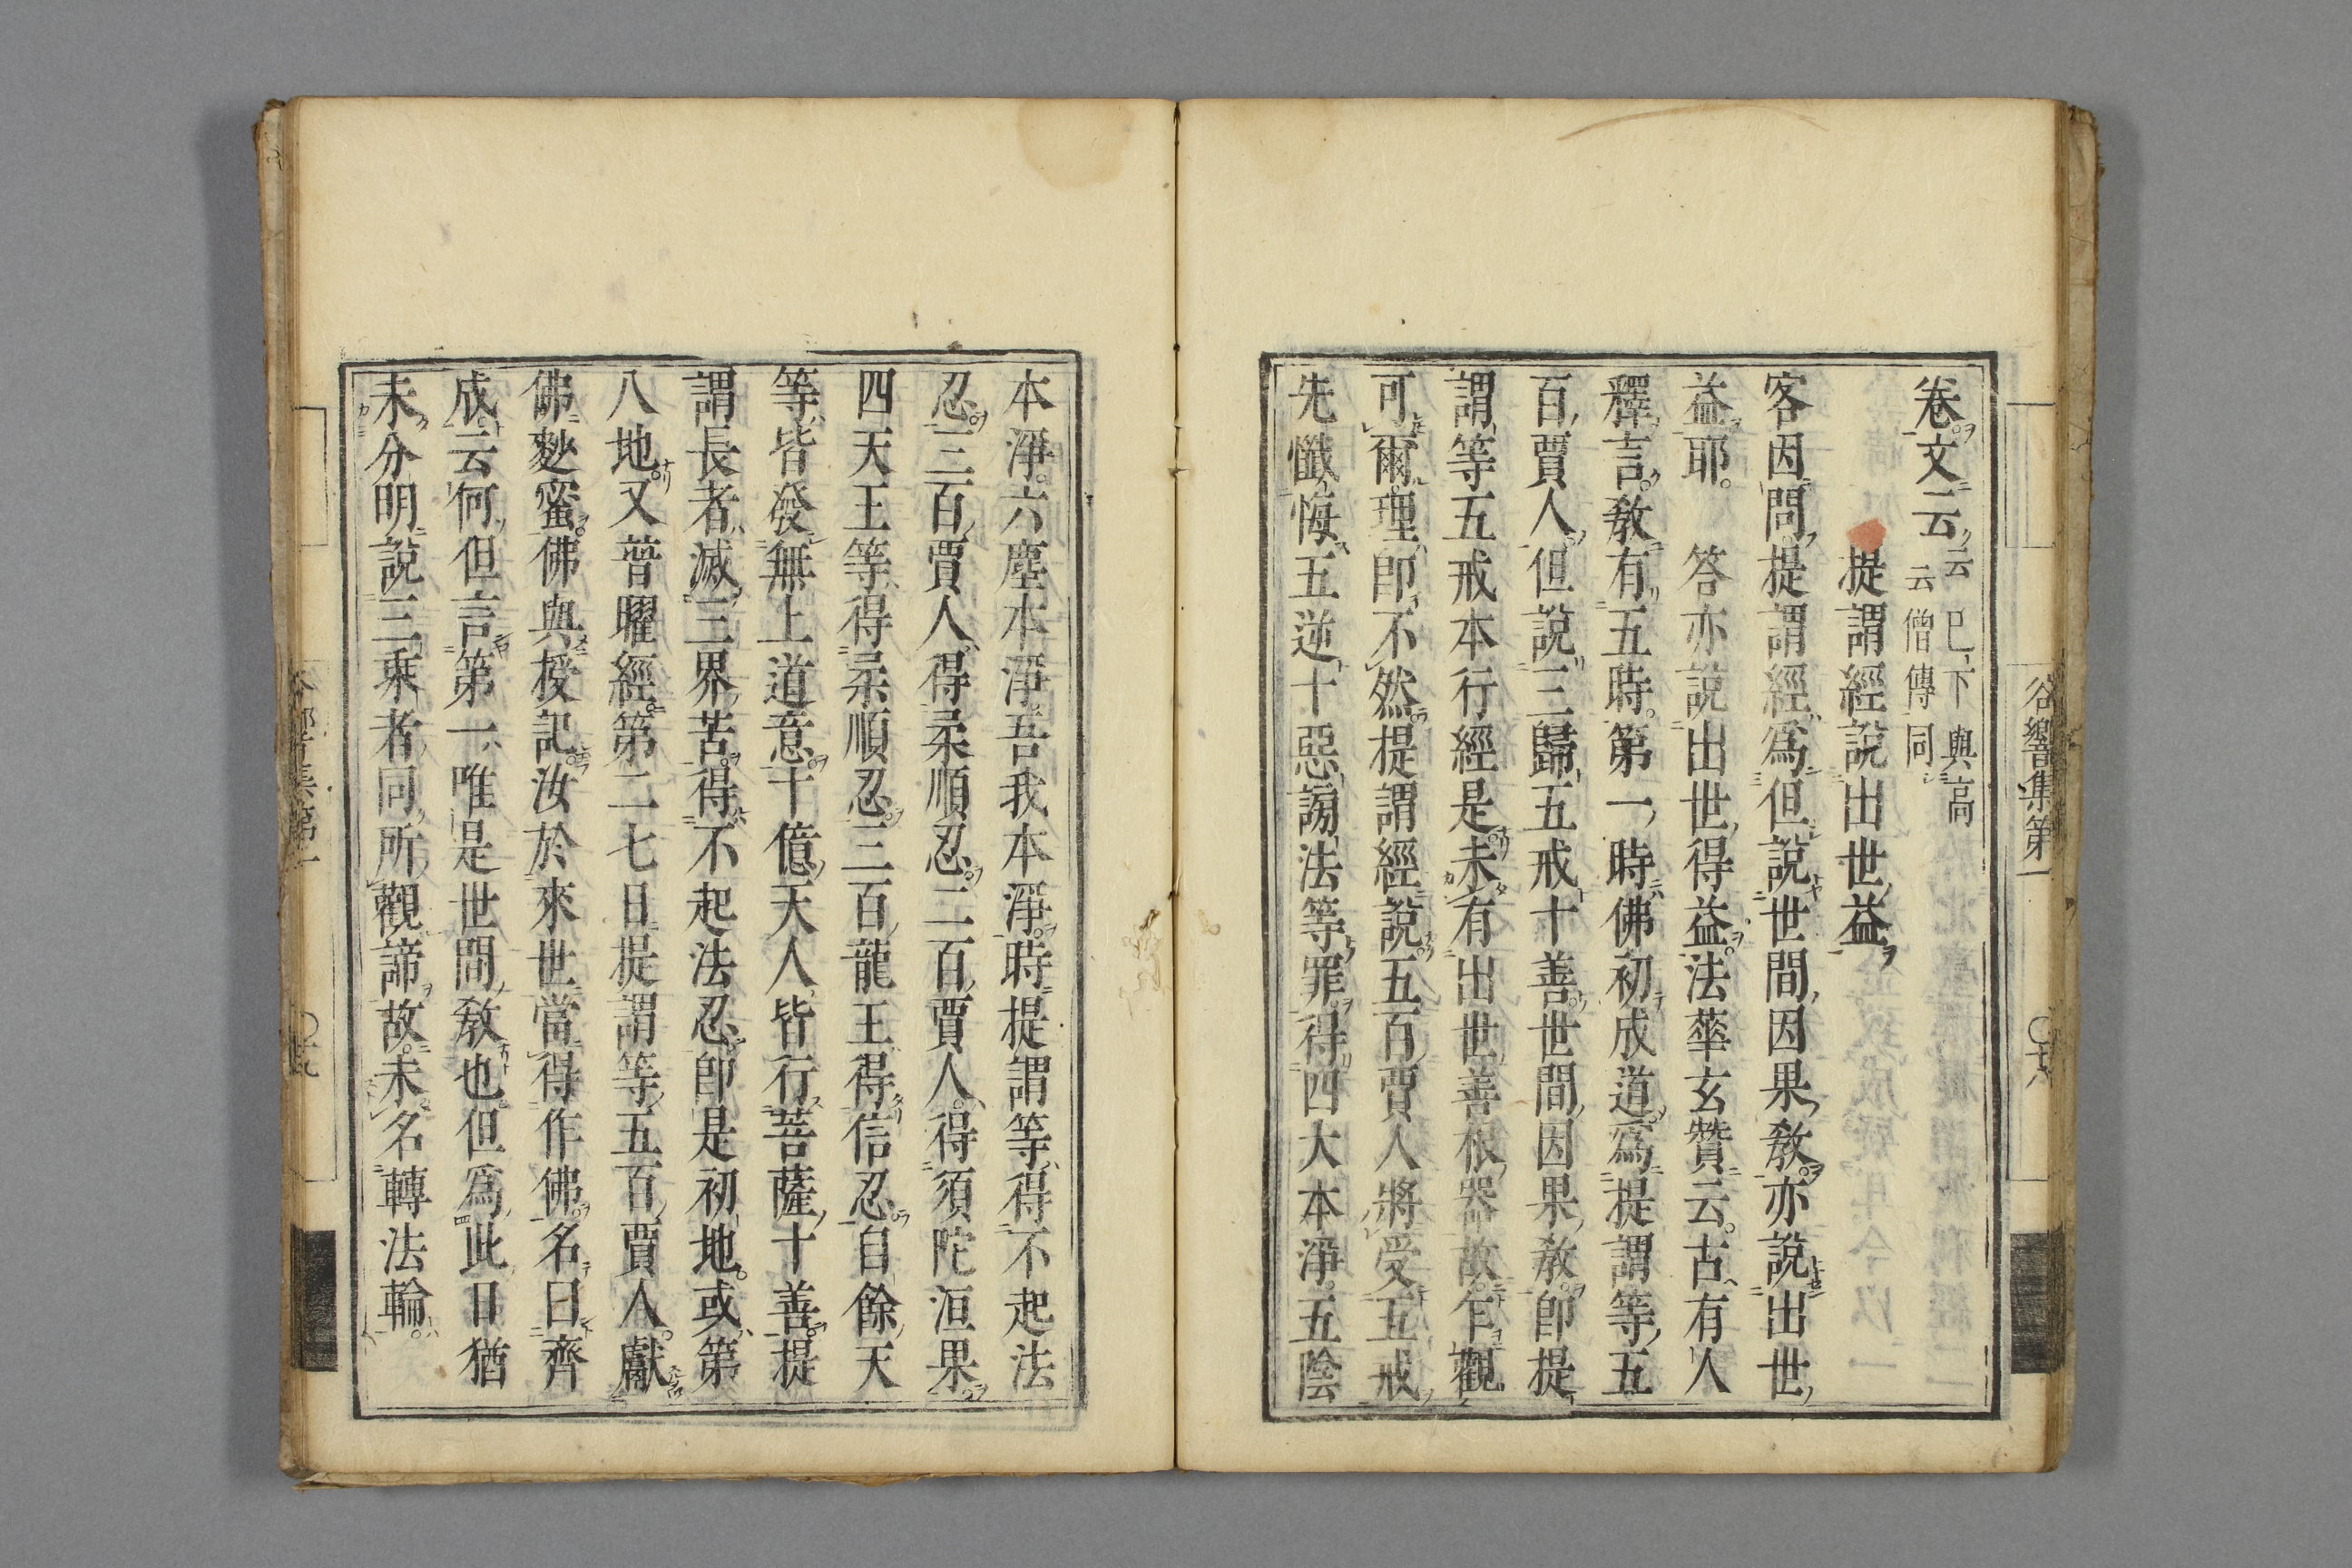 卷文云云云已下與高僧傳同
提謂經說出世益
客因問提謂經爲但說世間因果教亦說出世
益耶 答亦說出世得益法華玄贊云古有人
釋言教有五時第一時佛初成道爲提謂等五
百賈人但說三歸五戒十善世間因果教即提
謂等五戒本行經是未有出世善根器故乍觀
可爾理即不然提謂經說五百賈人將受五戒
先懺悔五逆十惡謗法等罪得四大本淨五陰
本淨六塵本淨吾我本淨時提謂等得不起法
忍三百賈人得柔順忍二百賈人得須陀洹果
四天王等得柔順忍三百龍王得信忍自餘天
等皆發無上道意十億天人皆行菩薩十善提
謂長者滅三界苦得不起法忍即是初地或第
八地又普曜經第二七日提謂等五百賈人獻
佛麨蜜佛與授記汝於來世當得作佛名曰齊
成云何但言第一唯是世間教也但爲此日猶
未分明說三乘者同所觀諦故未名轉法輪
谷響集第一
〇十八